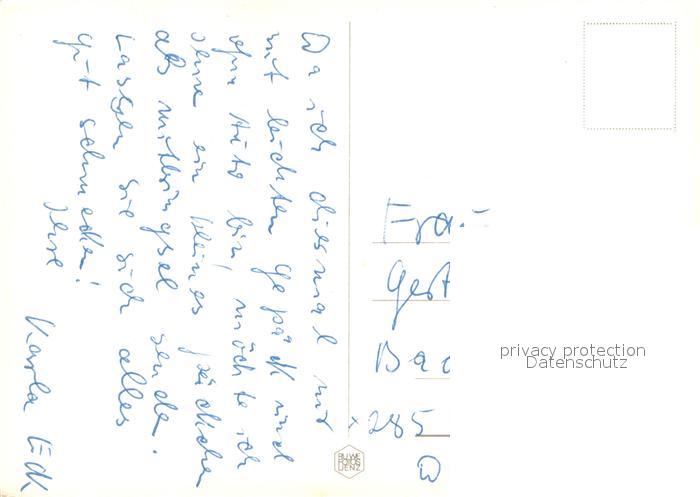 Da ich diesmal nur
mit leichtem Gepäck und
ohne Auto bin, möchte ich
Ihnen ein kleines Päckchen
als mitbringsel senden.
Lassen Sie sich alles
gut schmecken!
Ihre
Karla Eck
Frau
Gert
Bad
285
privacy protection
Datenschutz